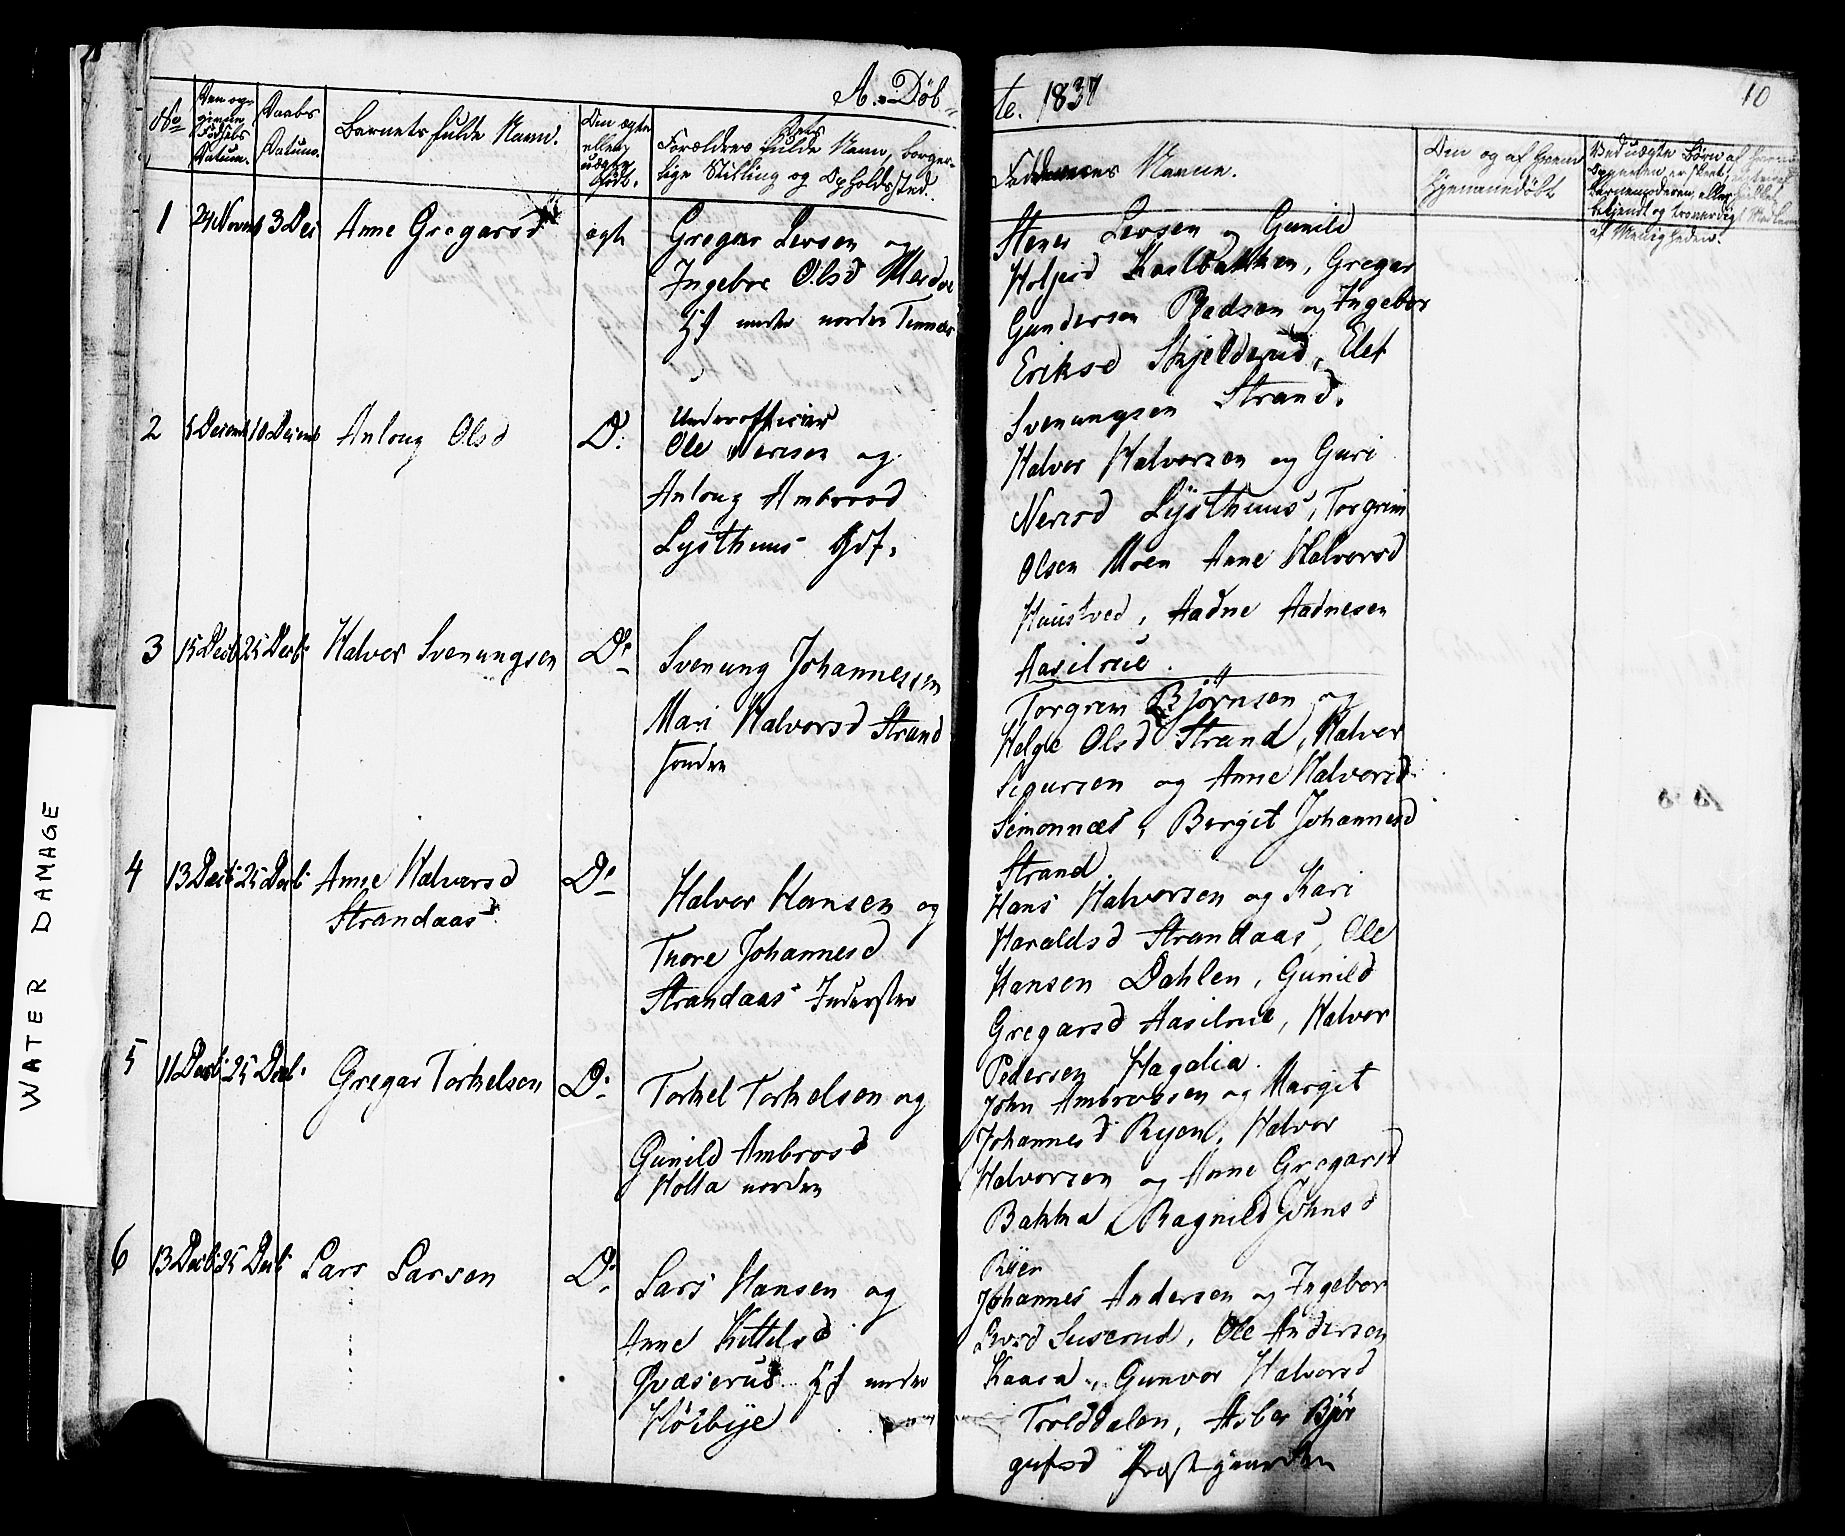 A. Döb-
te. 1837
10
No
Den op-
givne
Födsels
Datum.
Daabs
Datum.
Barnets fulde Navn.
Om ægte
eller
uægte
födt.
Dets
Forældres fulde Navn, borger-
lige Stilling og Opholdssted.
Faddernes Navne.
Om og af hvem
hjemmedöbt
Ved uægte Börn af hvem
Opgivelsen er skeet, enten af
Barnemoderen eller hvilket
bekjendt og troværdigt Medlem
af Menigheden.
1 24 Novemb 3 Dec Anne Gregarsd ægte Gregar Lersen og
Ingebor Olsd
Hf under nordre Temnes
Stener Levsen og Gunild
Holjesd Kaslbakken, Gregar
Gundersen og Ingebor
Eriksd Skjelderud, Elef
Svenungsen Strand.
2 5 Decemb 10 Decemb Anloug Olsd Do Underofficier
Ole Nerisen og
Anloug Ambrosd
Lysthuus Gdf.
Halvor Halvorsen og Guri
Nerisd Lysthuus, Torgrim
Olsen Moen Anne Halvorsd
Huustved, Aadne Aadnesen
Aasilrue.
3 15 Decbr 25 Decbr Halvor Svenungsen Do Svenung Johannessen
Mari Halvorsd Strand
söndre
Torgrim Björnsen og
Helge Olsd Strand, Halvor
Sigursen og Anne Halvorsd
Simonnæs, Bergit Johannesd
Strand.
4 13 Decb 25 Decb Anne Halvorsd
Strandaas
Do Halvor Hansen og
Tuore Johannesd
Strandaas Inderster
Hans Halvorsen og Kari
Haraldsd Strandaas, Ole
Hansen Dahlen, Gunild
Gregarsd Aasilrue, Halvor
Pedersen Hagalia.
5 11 Decb 25 Decb. Gregar Torkelsen Do Torkel Torkelsen og
Gunild Ambrosd
Holta nordre
John Ambrossen og Margit
Johannesd Ryen, Halvor
Halvorsen og Anne Gregarsd
Bakka, Ragnild Johnsd
Ryen
6 13 Decb 25 Decb Lars Larsen Do Lars Hansen og
Anne Kittelsd
Qvæserud Hf under
Höibye
Johannes Andersen og Ingebor
Suserud, Ole Andersen
Kaasa, Gunvor Halvorsd
Trolddalen, Asbor Björ
gufsd Præstgaarden
WATER DAMAGE